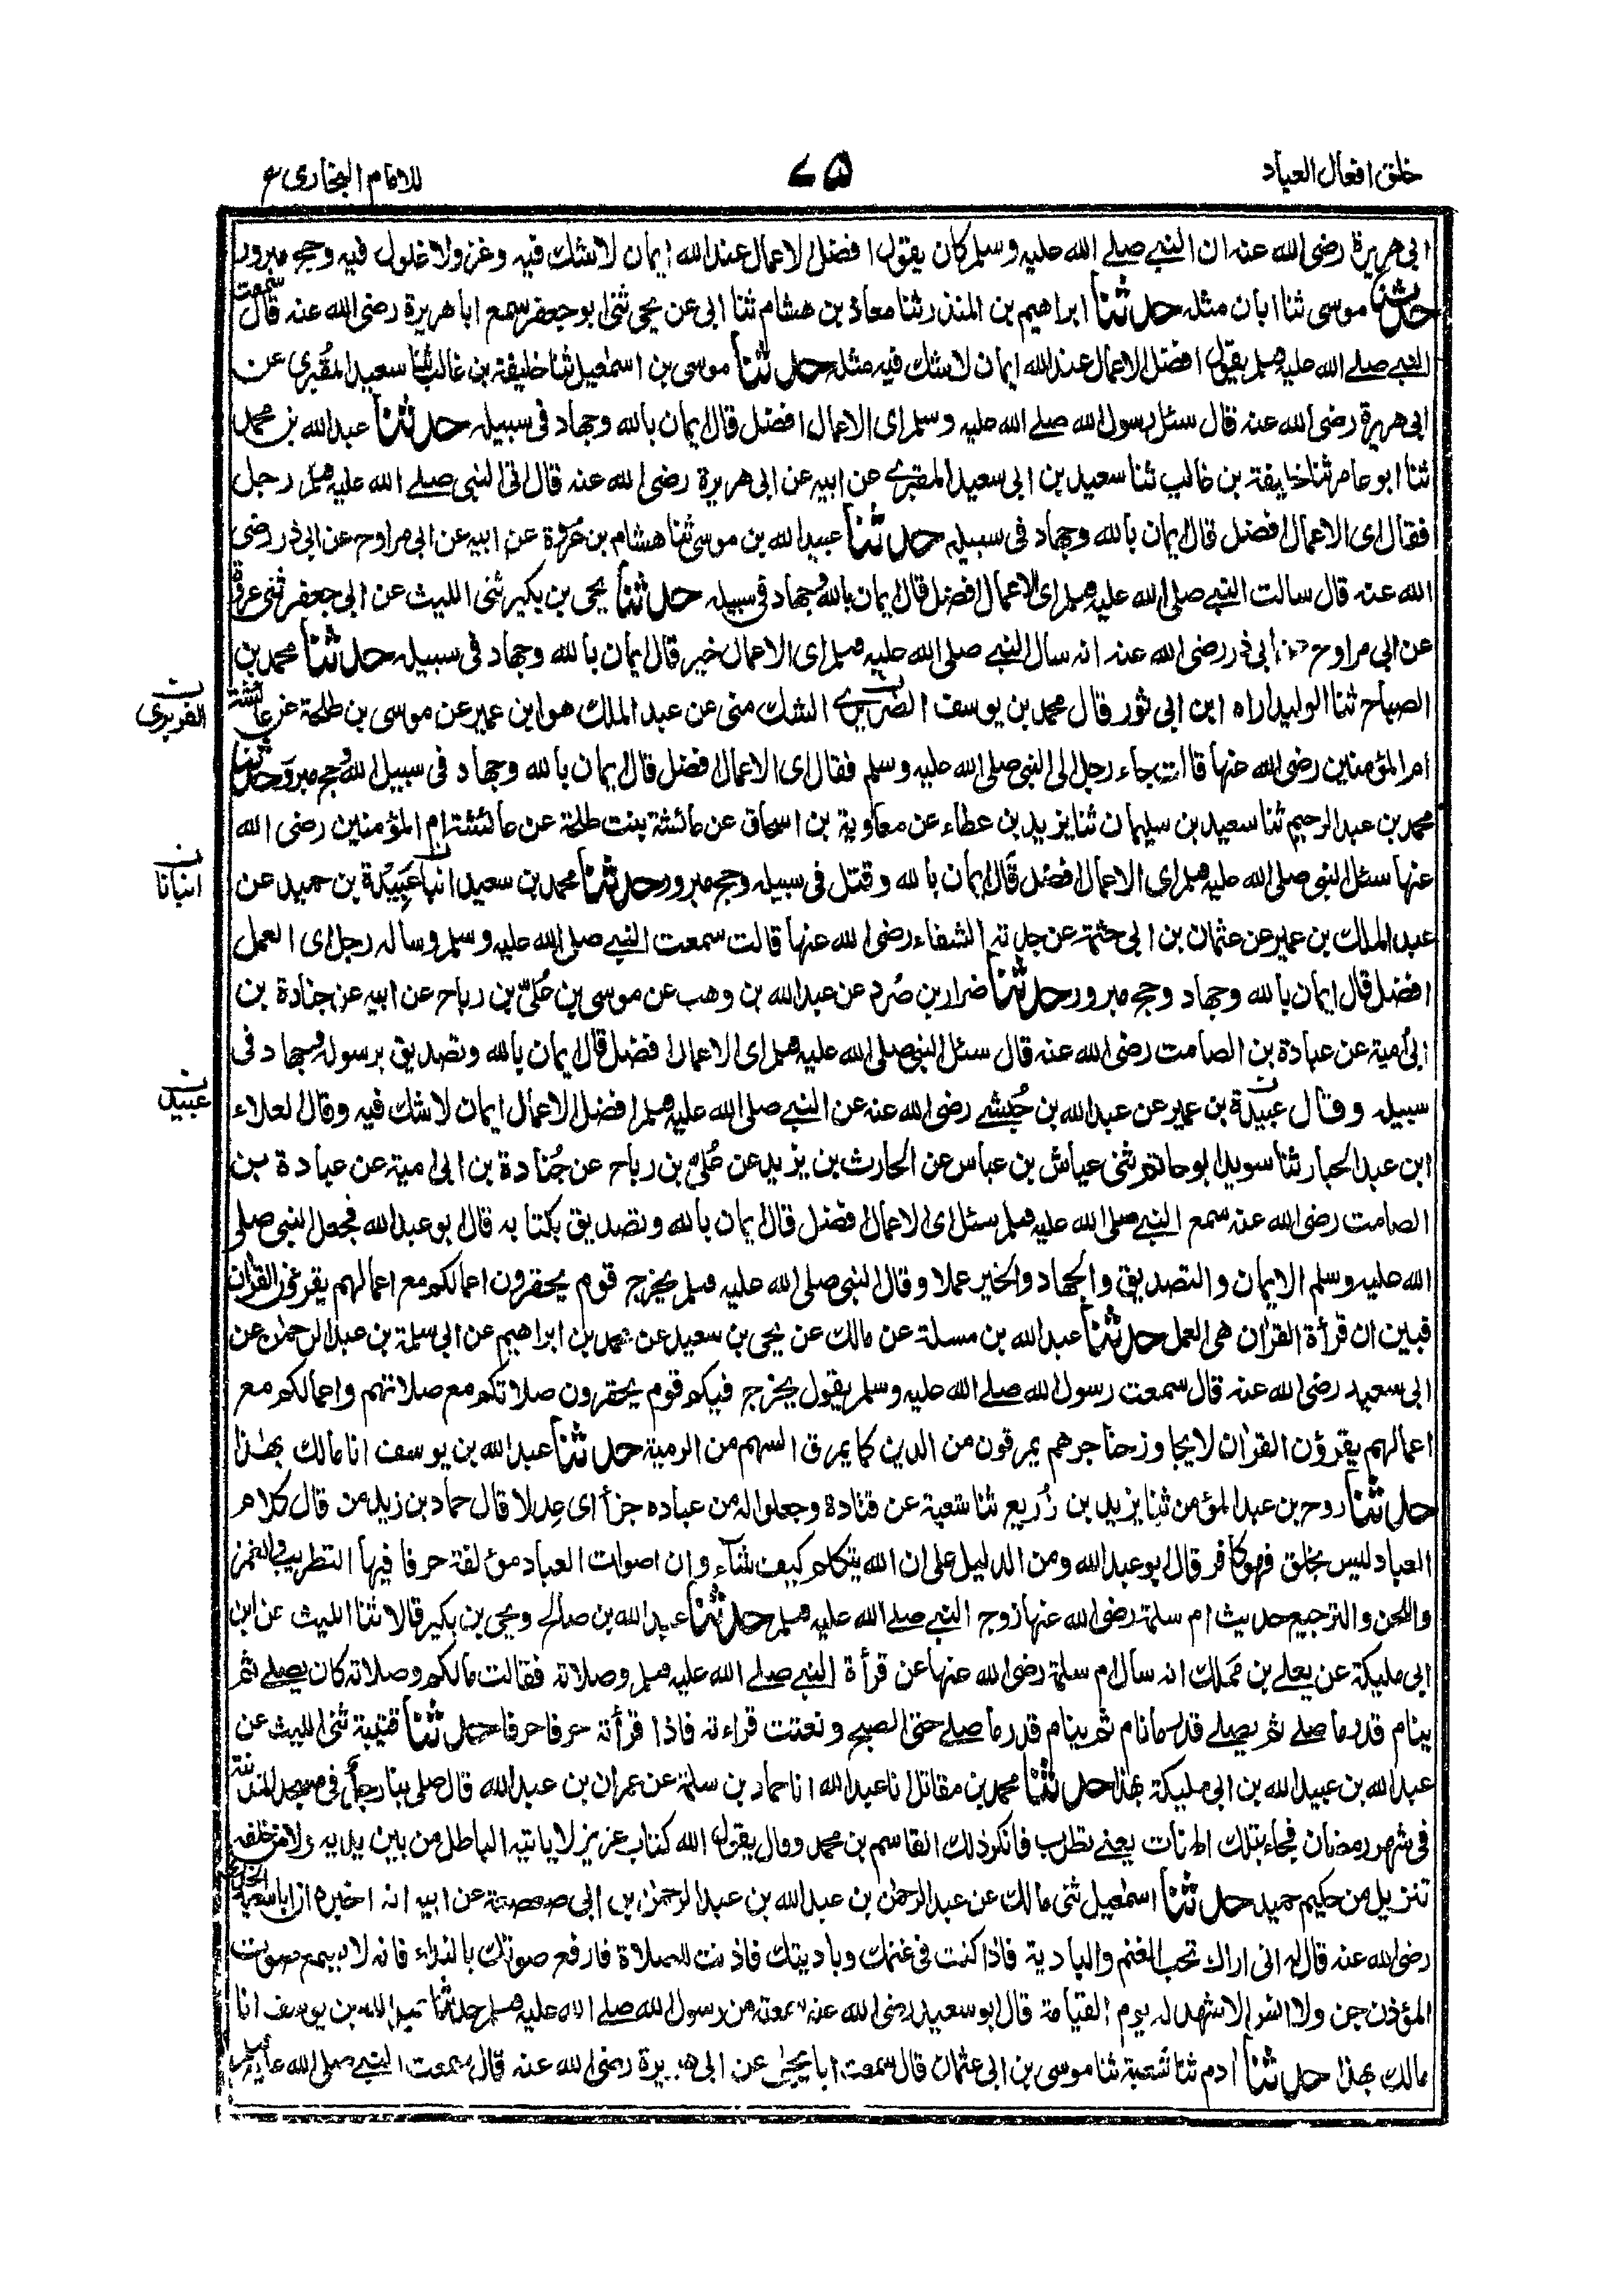 خلق افعال العباد
٧٥
للامام البخاري
ابي هريرة رضى الله عنه ان النبي صلے الله عليه وسلم كان يقول افضل الاعمال عند الله ايمان لاشك فيه وغزو لا غلول فيه وحج مبرور
حدثنا موسى ثنا ابان مثله حدثنا ابراهيم بن المنذر ثنا معاذ بن هشام ثنا ابي عن يحيى ثنى ابو جعفر سمع ابا هريرة رضى الله عنه قال سمعت
النبي صلے الله عليه وسلم يقول افضل الاعمال عند الله ايمان لاشك فيه مثله حدثنا موسى بن اسمعيل ثنا خليفة بن غالب ثنا سعيد المقبري عن
ابي هريرة رضى الله عنه قال سئل رسول الله صلے الله عليه وسلم اى الاعمال افضل قال ايمان بالله وجهاد فى سبيله حدثنا عبد الله بن محمد
ثنا ابو عامر ثنا خليفة بن غالب ثنا سعيد بن ابي سعيد المقبرے عن ابيه عن ابي هريرة رضى الله عنه قال اتى النبي صلے الله عليه وسلم رجل
فقال اى الاعمال افضل قال ايمان بالله وجهاد فى سبيله حدثنا عبيد الله بن موسى ثنا هشام بن عروة عن ابيه عن ابي مراوح عن ابي ذر رضى
الله عنه قال سالت النبي صلى الله عليه وسلم اى الاعمال افضل قال ايمان بالله وجهاد فى سبيله حدثنا يحيى بن بكير ثنى الليث عن ابي جعفر ثنى عروة
عن ابي مراوح عن ابي ذر رضى الله عنه انه سال النبي صلى الله عليه وسلم اى الاعمال خير قال ايمان بالله وجهاد فى سبيله حدثنا محمد بن
الصباح ثنا الوليد اراه ابن ابي ثور قال محمد بن يوسف الشك منى عن عبد الملك هو ابن عمير عن موسى بن طلحة عن عائشة
الفربري
ام المؤمنين رضى الله عنها قالت جاء رجل الى النبي صلى الله عليه وسلم فقال اى الاعمال افضل قال ايمان بالله وجهاد فى سبيل الله وحج مبرور حدثنا
محمد بن عبد الرحيم ثنا سعيد بن سليمان ثنا يزيد بن عطاء عن معاوية بن اسحاق عن عائشة بنت طلحة عن عائشة ام المؤمنين رضى الله
عنها سئل النبي صلى الله عليه وسلم اى الاعمال افضل قال ايمان بالله وقتل فى سبيله وحج مبرور حدثنا محمد بن سعيد انبا عبيدة بن حميد عن
انبانا
عبد الملك بن عمير عن عثمان بن ابي حثمة عن جدته الشفاء رضى الله عنها قالت سمعت النبي صلى الله عليه وسلم وساله رجل اى العمل
افضل قال ايمان بالله وجهاد وحج مبرور حدثنا ضرار بن صُرد عن عبد الله بن وهب عن موسى بن عُلىّ بن رباح عن ابيه عن جنادة بن
ابي أمية عن عبادة بن الصامت رضى الله عنه قال سئل النبي صلى الله عليه وسلم اى الاعمال افضل قال ايمان بالله وتصديق برسوله وجهاد فى
سبيله وقال عبيدة بن عمير عن عبد الله بن حُبشے رضى الله عنه عن النبي صلى الله عليه وسلم افضل الاعمال ايمان لاشك فيه وقال العلاء
عبيد
ابن عبد الجبار ثنا سويد ابو حاتم ثنى عياش بن عباس عن الحارث بن يزيد عن عُلىّ بن رباح عن جُنادة بن ابي امية عن عبادة بن
الصامت رضى الله عنه سمع النبي صلى الله عليه وسلم سئل اى الاعمال افضل قال ايمان بالله وتصديق بكتابه قال ابو عبد الله فجعل النبي صلى
الله عليه وسلم الايمان والتصديق والجهاد والخير عملا وقال النبي صلى الله عليه وسلم يخرج قوم يحقرون اعمالكم مع اعمالهم يقرءون القران
فبين ان قرأة القران هى العمل حدثنا عبد الله بن مسلمة عن مالك عن يحيى بن سعيد عن محمد بن ابراهيم عن ابي سلمة بن عبد الرحمن عن
ابي سعيد رضى الله عنه قال سمعت رسول الله صلے الله عليه وسلم يقول يخرج فيكم قوم يحقرون صلاتكم مع صلاتهم واعمالكم مع
اعمالهم يقرؤن القران لا يجاوز حناجرهم يمرقون من الدين كما يمرق السهم من الرمية حدثنا عبد الله بن يوسف انا مالك بهذا
حدثنا روح بن عبد المؤمن ثنا يزيد بن زُريع ثنا شعبة عن قتادة وجعلوا له من عباده جزأ اى عدلا قال حماد بن زيد من قال كلام
العباد ليس بخلق فهو كافر قال ابو عبد الله ومن الدليل على ان الله يتكلم كيف شاء وان اصوات العباد مؤلفة حرفا فيها التطريب والغمز
واللحن والترجيع حديث ام سلمة رضى الله عنها زوج النبي صلے الله عليه وسلم حدثنا عبد الله بن صالح ويحيى بن بكير قالا ثنا الليث عن ابن
ابي مليكة عن يعلے بن مَملك انه سال ام سلمة رضى الله عنها عن قرأة النبي صلے الله عليه وسلم وصلاته فقالت مالكم وصلاته كان يصلے ثم
ينام قدر ما صلے ثم يصلے قدر ما نام ثم ينام قدر ما صلے حتى الصبح ونعتت قراءته فاذا قرأته حرفا حرفا حدثنا قتيبة ثنى الليث عن
عبد الله بن عبيد الله بن ابي مليكة بهذا حدثنا محمد بن مقاتل انا عبد الله انا حماد بن سلمة عن عمران بن عبد الله قال صلى بنا رجل فى مسجد المدينة
فى شهر رمضان فجاء بتلك الهنات يعنے تطرب فانكر ذلك القاسم بن محمد وقال يقول الله كتاب عزيز لا ياتيه الباطل من بين يديه ولا من خلفه
تنزيل من حكيم حميد حدثنا اسمعيل ثنى مالك عن عبد الرحمن بن عبد الله بن عبد الرحمن بن ابي صعصعة عن ابيه انه اخبره ان ابا سعيد الخدري
رضى الله عنه قال له انى اراك تحب الغنم والبادية فاذا كنت فى غنمك وباديتك فاذنت للصلاة فارفع صوتك بالنداء فانه لا يسمع صوت
المؤذن جن ولا انس الا شهد له يوم القيامة قال ابو سعيد رضى الله عنه سمعته من رسول الله صلے الله عليه وسلم حدثنا عبد الله بن يوسف انا
مالك بهذا حدثنا ادم ثنا شعبة ثنا موسى بن ابي عثمان قال سمعت ابا يحيى عن ابي هريرة رضى الله عنه قال سمعت النبي صلى الله عليه وسلم